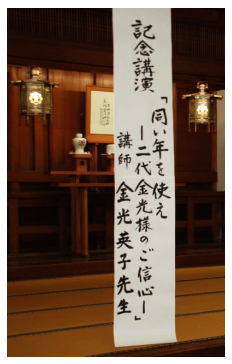 記念講演
「同い年を使え
―二代金光様のご信心―」
講師 金光英子先生